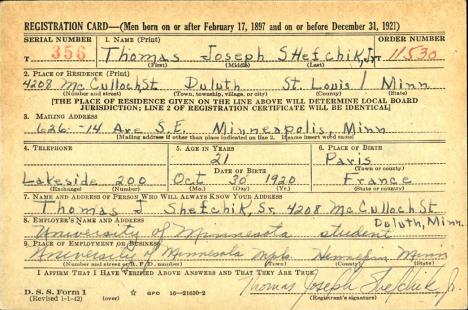 REGISTRATION CARD—(Men born on or after February 17, 1897 and on or before December 31, 1921)
SERIAL NUMBER 1. NAME (Print) ORDER NUMBER
T 356 Thomas Joseph Shefchik, Jr. T 11530
(First) (Middle) (Last)
2. PLACE OF RESIDENCE (Print)
4208 McCulloch St Duluth St. Louis Minn
(Number and street) (Town, township, village, or city) (County) (State)
[THE PLACE OF RESIDENCE GIVEN ON THE LINE ABOVE WILL DETERMINE LOCAL BOARD
JURISDICTION; LINE 2 OF REGISTRATION CERTIFICATE WILL BE IDENTICAL]
3. MAILING ADDRESS
626-14 Ave S.E. Minneapolis, Minn
[Mailing address if other than place indicated on line 2. If same insert word same]
4. TELEPHONE 5. AGE IN YEARS 6. PLACE OF BIRTH
21 Paris
DATE OF BIRTH (Town or county)
Lakeside 200 Oct 30 1920 France
(Exchange) (Number) (Mo.) (Day) (Yr.) (State or country)
7. NAME AND ADDRESS OF PERSON WHO WILL ALWAYS KNOW YOUR ADDRESS
Thomas J Shefchik, Sr. 4208 McCulloch St
8. EMPLOYER'S NAME AND ADDRESS Duluth, Minn.
University of Minnesota student
9. PLACE OF EMPLOYMENT OR BUSINESS
University of Minnesota Mpls. Hennepin Minn
(Number and street or R. F. D. number) (Town) (County) (State)
I AFFIRM THAT I HAVE VERIFIED ABOVE ANSWERS AND THAT THEY ARE TRUE.
D. S. S. Form 1
(Revised 1-1-42) (over) GPO 16—21630-2 Thomas Joseph Shefchik, Jr.
(Registrant's signature)